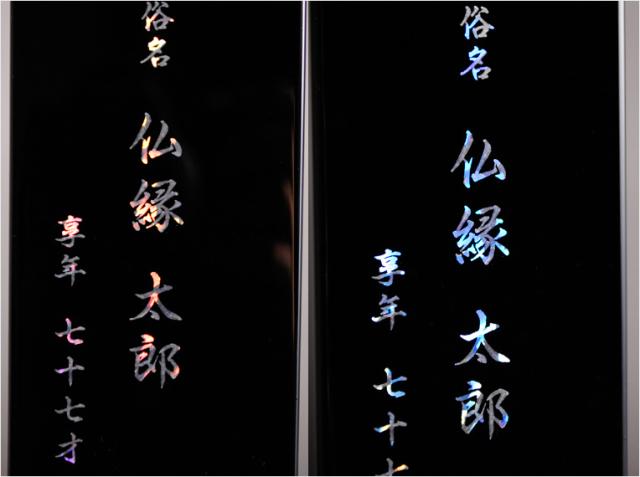 俗名 仏縁 太郎
享年 七十七才
俗名 仏縁 太郎
享年 七十